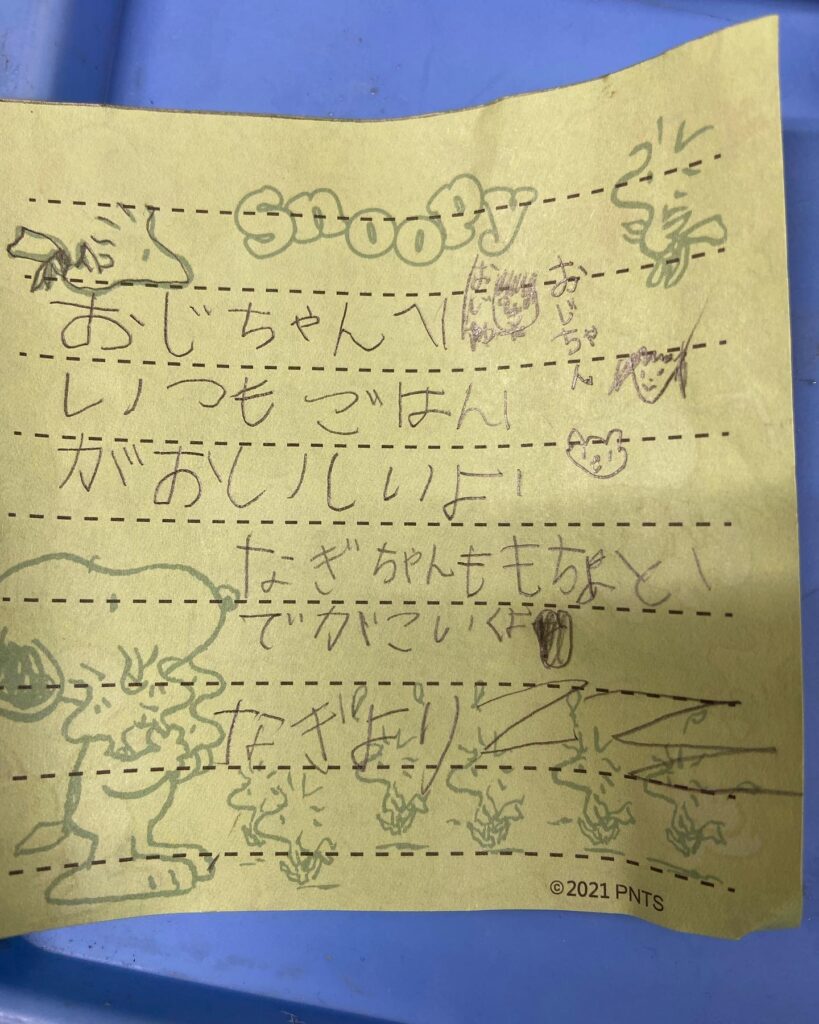 Snoopy
おじちゃんへ
おじちゃん
いつもごはん
がおいしいよ
なぎちゃんももちょと
でがこいくよ
なぎより
©2021 PNTS